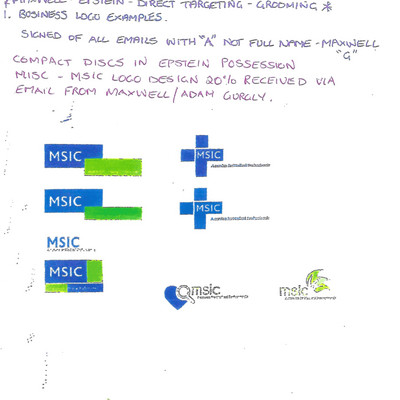 MAXWELL - EPSTEIN - DIRECT TARGETING - GROOMING *
1. BUSINESS LOGO EXAMPLES.
SIGNED OF ALL EMAILS WITH "A" NOT FULL NAME - MAXWELL "G"
COMPACT DISCS IN EPSTEIN POSSESSION
MISC - MSIC LOGO DESIGN 20% RECEIVED VIA
EMAIL FROM MAXWELL/ADAM GURGLY.
MSIC
MSIC
MSIC
MSIC
MSIC
MSIC
msic
msic